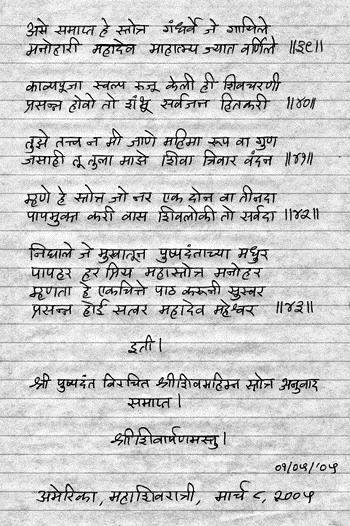 असे समाप्त हे स्तोत्र गंधर्वे जे गायिले
मनोहारी महादेव माहात्म्य ज्यात वर्णिले ॥३९॥
काव्यपूजा स्वल्प रुजू केली ही शिवचरणी
प्रसन्न होवो तो शंभू सर्वजन हितकरी ॥४०॥
तुझे तत्त्व न मी जाणे महिमा रूप वा गुण
जसाही तू तुला माझे शिवा त्रिवार वंदन ॥४१॥
म्हणे हे स्तोत्र जो नर एक दोन वा तीनदा
पापमुक्त करी वास शिवलोकी तो सर्वदा ॥४२॥
निघाले जे मुखातून पुष्पदंताच्या मधुर
पापहर हर प्रिय महास्तोत्र मनोहर
म्हणता हे एकचित्ते पाठ करूनी सुस्वर
प्रसन्न होई सत्वर महादेव महेश्वर ॥४३॥
इती।
श्री पुष्पदंत विरचित श्रीशिवमहिम्न स्तोत्र अनुवाद
समाप्त।
श्रीशिवार्पणमस्तु।
०१/०५/'०५
अमेरिका, महाशिवरात्री, मार्च ८, २००५